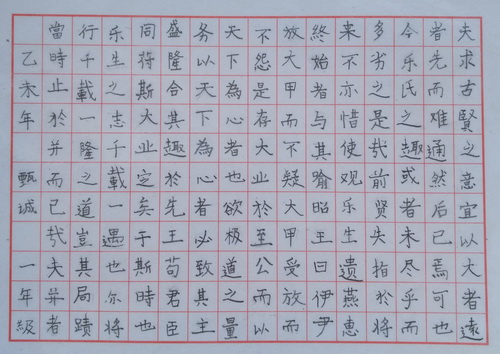 夫求古賢之意宜以大者遠
者先而难通然后已焉可也
今乐氏之趣或者未尽乎而
多劣之是哉前贤失指於將
来不亦惜使观乐生遗燕惠
終始者与其喻昭王曰伊尹
放大甲而不疑大甲受放而
不怨是存大业於至公而以
天下為心者也欲极道之量
务以天下為心者必致其主
盛隆合其趣於先王苟君臣
同苻斯大业定矣于斯時也
乐生之志千載一遇也尔將
行千載一隆之道豈其局蹟
當時止於并而已哉夫并者
乙未年 甄城 一年級